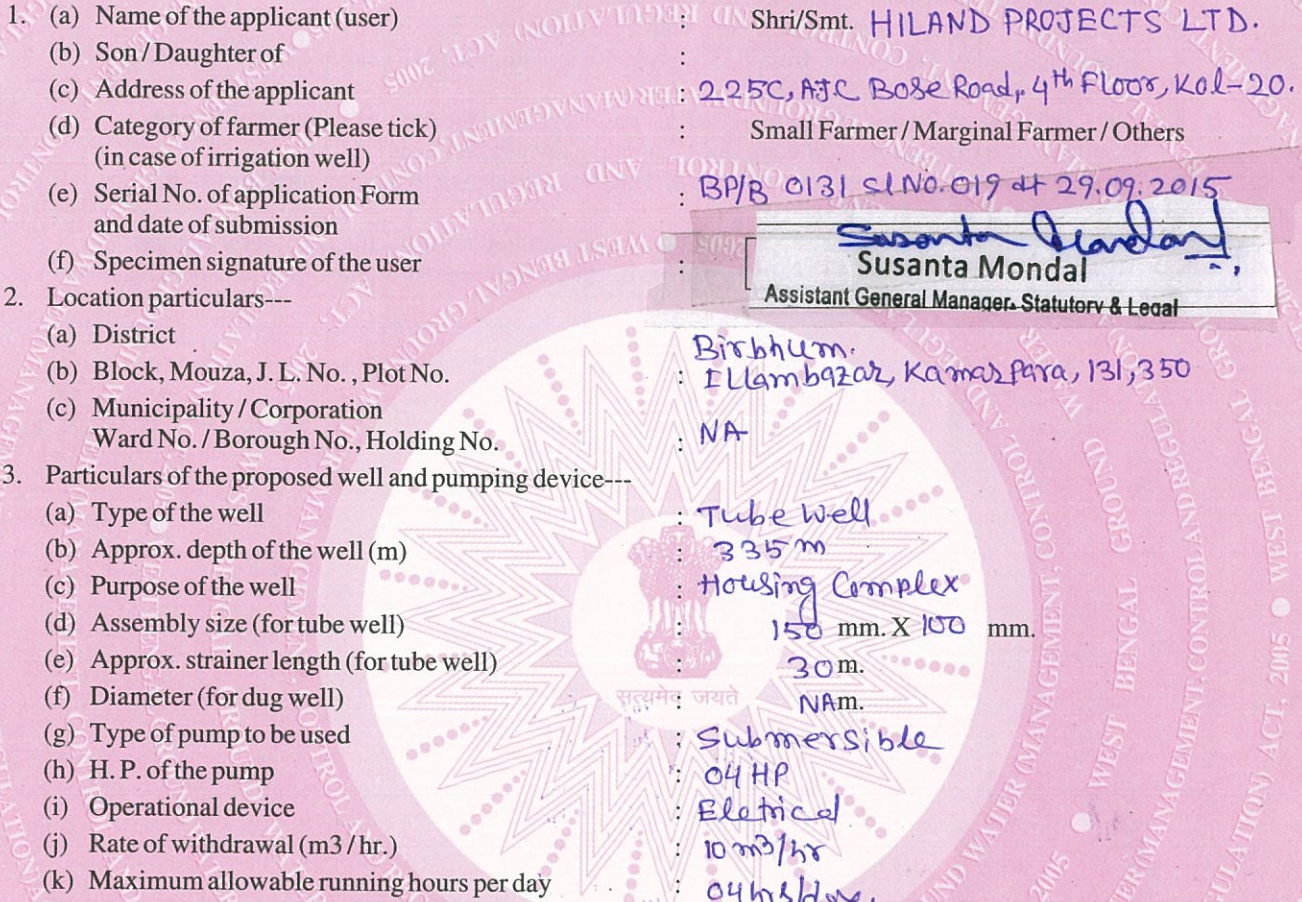 1. (a) Name of the applicant (user) : Shri/Smt. HILAND PROJECTS LTD.
(b) Son / Daughter of :
(c) Address of the applicant : 225C, AJC Bose Road, 4th Floor, Kol-20.
(d) Category of farmer (Please tick) : Small Farmer / Marginal Farmer / Others
(in case of irrigation well)
(e) Serial No. of application Form : BP/B 0131 Sl No. 019 dt 29.09.2015
and date of submission
(f) Specimen signature of the user :
Susanta Mondal
Assistant General Manager, Statutory & Legal
2. Location particulars---
(a) District Birbhum.
(b) Block, Mouza, J. L. No. , Plot No. : Illambazar, Kamarpara, 131, 350
(c) Municipality / Corporation
Ward No. / Borough No., Holding No. : NA
3. Particulars of the proposed well and pumping device---
(a) Type of the well : Tube Well
(b) Approx. depth of the well (m) : 335 m
(c) Purpose of the well : Housing Complex
(d) Assembly size (for tube well) : 150 mm. X 100 mm.
(e) Approx. strainer length (for tube well) : 30 m.
(f) Diameter (for dug well) : NA m.
सत्यमेव जयते
(g) Type of pump to be used : Submersible
(h) H. P. of the pump : 04 HP
(i) Operational device : Eletrical
(j) Rate of withdrawal (m3 / hr.) : 10 m3/hr
(k) Maximum allowable running hours per day : 04 hrs